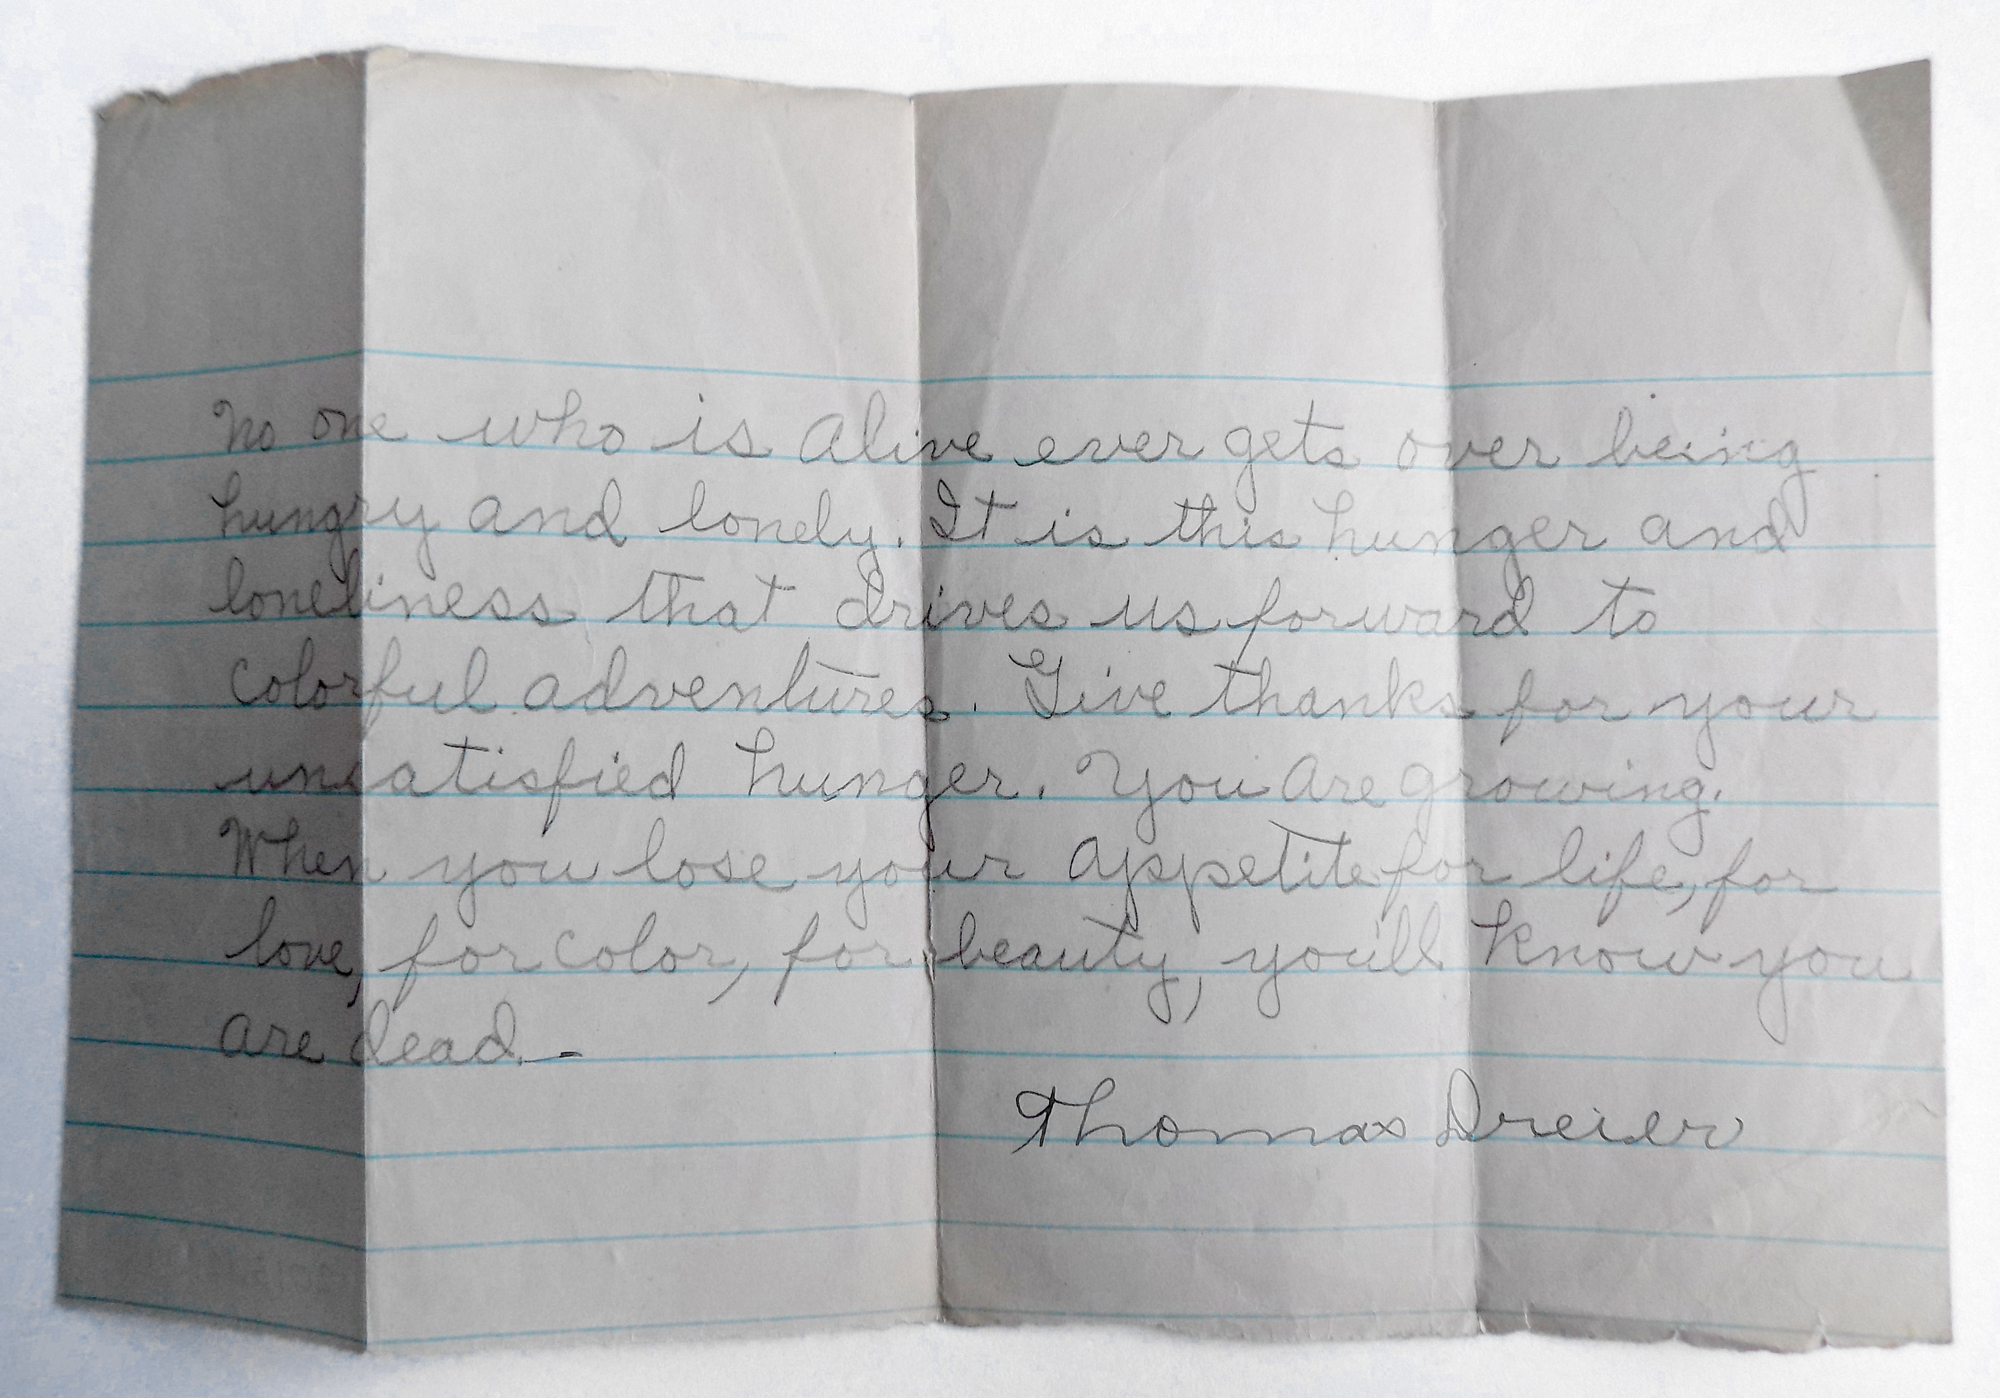 No one who is alive ever gets over being
hungry and lonely. It is this hunger and
loneliness that drives us forward to
colorful adventures. Give thanks for your
unsatisfied hunger. You are growing.
When you lose your appetite for life, for
love, for color, for beauty, you'll know you
are dead. -
Thomas Dreier